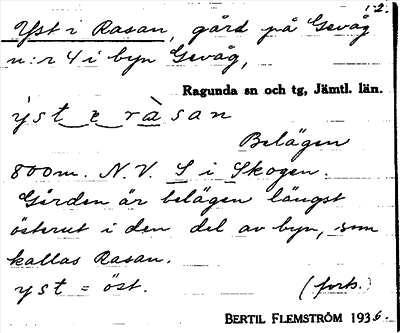 1-2.
Yst i Rasan, gård på Gevåg
n:r 4 i byn Gevåg,
Ragunda sn och tg, Jämtl. län.
yst e ràsan
Belägen
800m. N.V. S i Skogen.
Gården är belägen längst
österut i den del av byn, som
kallas Rasan.
yst = öst. (forts.)
BERTIL FLEMSTRÖM 1936.